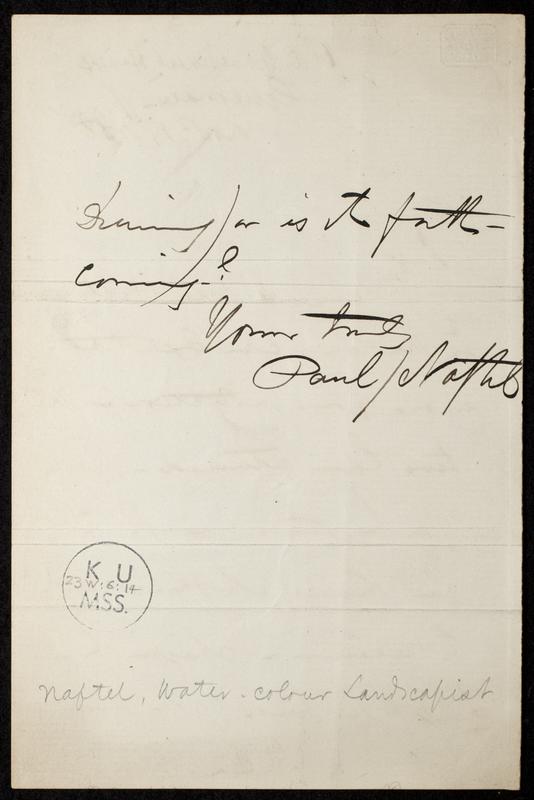 or is it forth-
coming?
Yours truly
Paul J Naftel
K U
23 W: 6: 14
MSS.
Naftel, Water-colour Landscapist